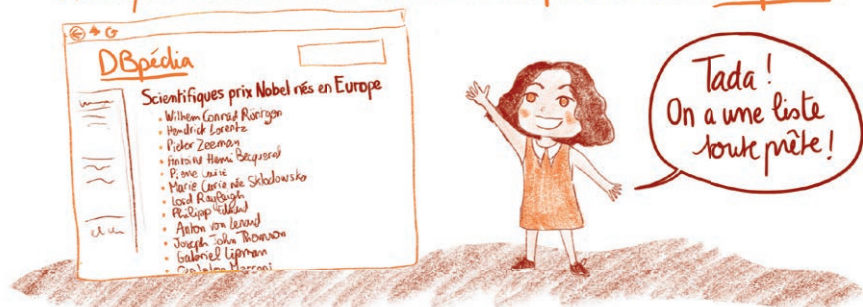 DBpédia
Scientifiques prix Nobel nés en Europe
Wilhem Conrad Röntgen
Hendrick Lorentz
Pieter Zeeman
Antoine Henri Becquerel
Pierre Curie
Marie Curie née Sklodowska
Lord Rayleigh
Philipp
Anton von Lenard
Joseph John Thomson
Gabriel Lipman
Marconi
Tada !
On a une liste
toute prête !